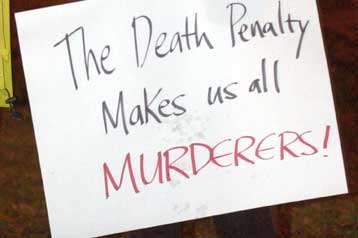 The Death Penalty
Makes us all
MURDERERS!